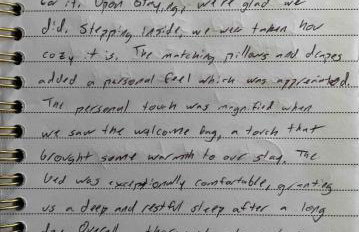 for it. Upon staying, were glad we
did. Stepping inside, we were taken how
cozy it is. The matching pillows and drapes
added a personal feel which was appreciated.
The personal touch was magnified when
we saw the welcome bag, a torch that
brought some warmth to our stay. The
bed was exceptionally comfortable, granting
us a deep and restful sleep after a long
day. Overall,